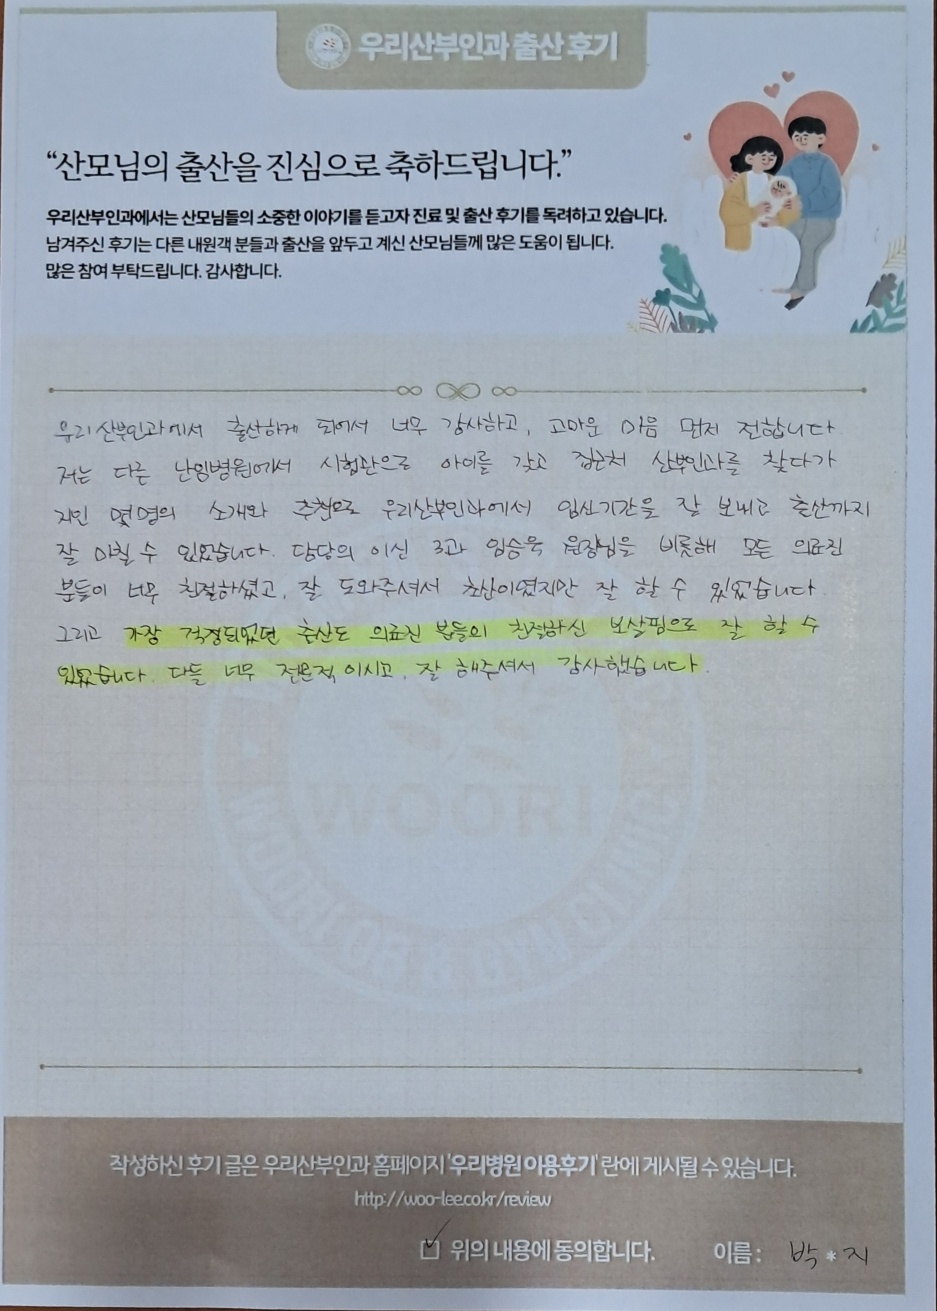 우리산부인과 출산 후기
“산모님의 출산을 진심으로 축하드립니다.”
우리산부인과에서는 산모님들의 소중한 이야기를 듣고자 진료 및 출산 후기를 독려하고 있습니다.
남겨주신 후기는 다른 내원객 분들과 출산을 앞두고 계신 산모님들께 많은 도움이 됩니다.
많은 참여 부탁드립니다. 감사합니다.
우리산부인과에서 출산하게 되어서 너무 감사하고, 고마운 마음 먼저 전합니다
저는 다른 난임병원에서 시험관으로 아이를 갖고 집근처 산부인과를 찾다가
지인 몇명의 소개와 추천으로 우리산부인과에서 임신기간을 잘 보내고 출산까지
잘 마칠 수 있었습니다. 담당의 이신 3과 임승욱 원장님을 비롯해 모든 의료진
분들이 너무 친절하셨고, 잘 도와주셔서 초산이였지만 잘 할 수 있었습니다.
그리고 가장 걱정되었던 출산도 의료진 분들의 친절하신 보살핌으로 잘 할 수
있었습니다. 다들 너무 전문적이시고, 잘 해주셔서 감사했습니다.
WOORI
WOORI OB & GYN CLINIC
작성하신 후기 글은 우리산부인과 홈페이지 '우리병원 이용후기' 란에 게시될 수 있습니다.
http://woo-lee.co.kr/review
위의 내용에 동의합니다. 이름 : 박*지